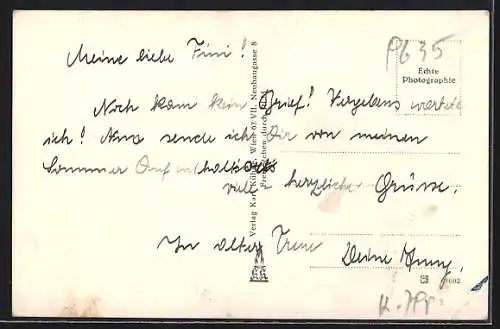 Meine liebe Fini!
P635
Echte
Photographie
Noch kam kein Brief! Vergebens wartete
ich! Nun sende ich Dir von meinen
Sommer Aufenthaltsorts
viele herzliche Grüsse.
In alter Treue Deine Anny.
Verlag Karl Wien 62 VII., Neubaugasse 8